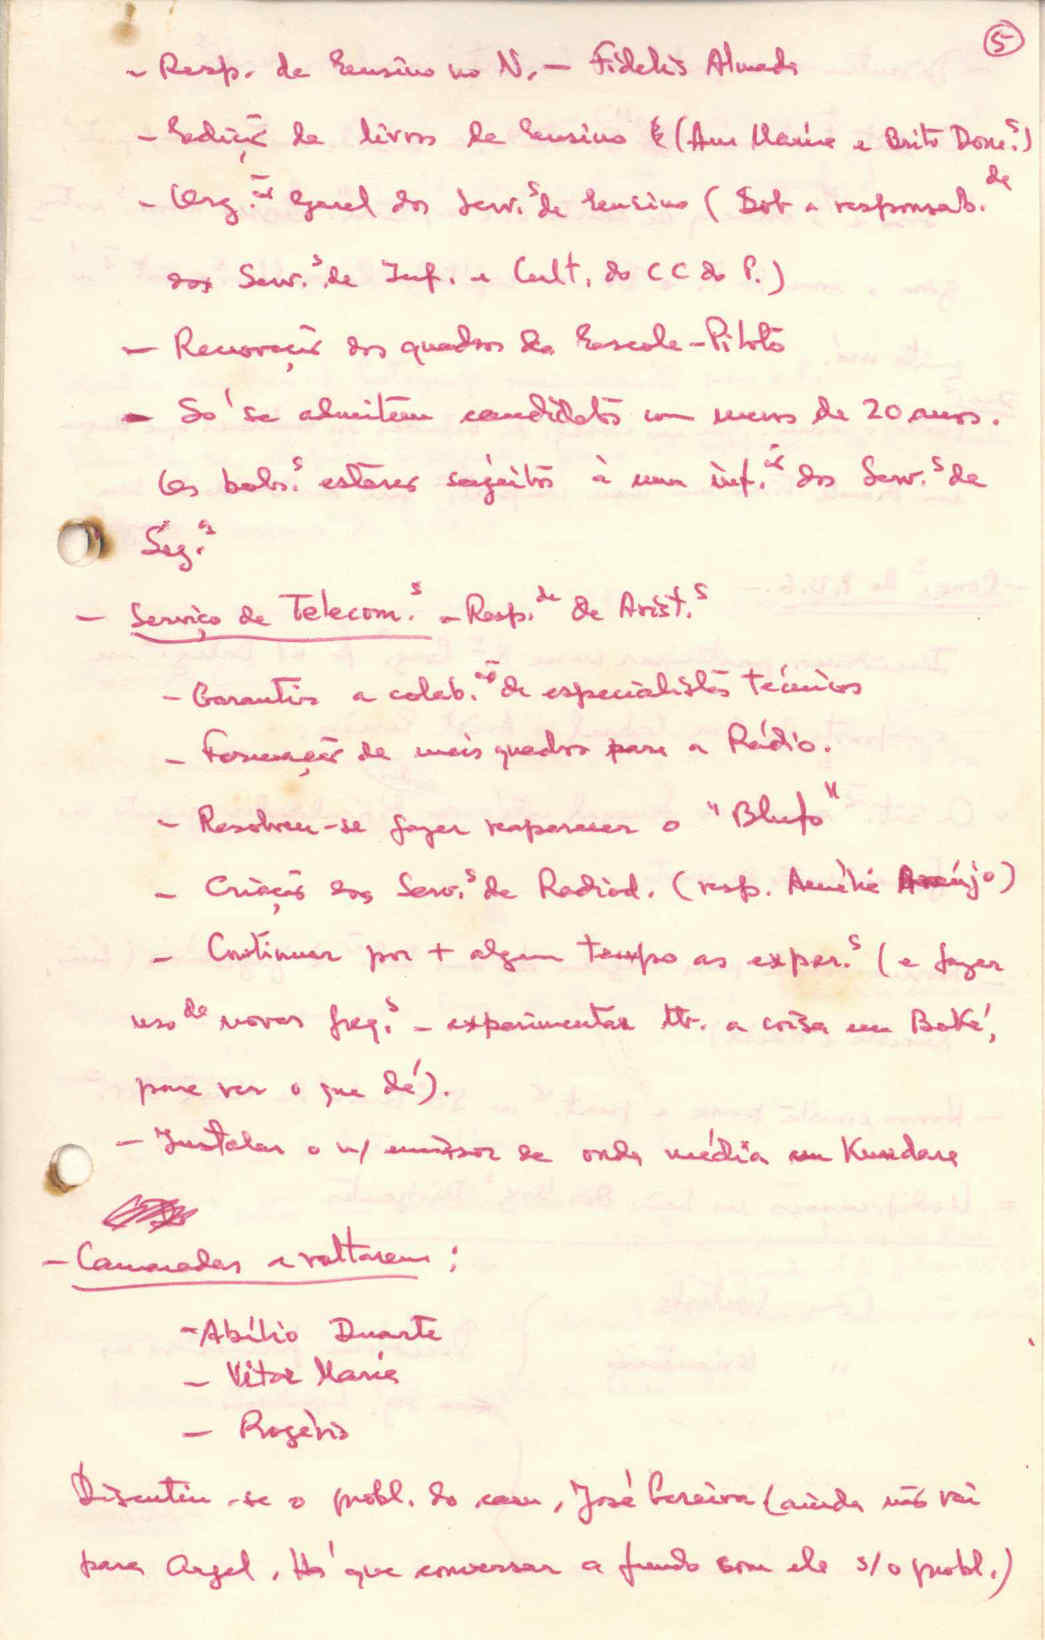 5
- Resp. de Ensino no N. - Fidelis Almada
- Edição de livros de Ensino (Ana Maria e Brito Done.s)
- Org.ão geral dos Serv.s de Ensino (Sob a responsab.de
dos Serv.s de Inf. e Cult. do CC do P.)
- Renovação dos quadros da Escola-Piloto
- Só se admitem candidatos com menos de 20 anos.
Os bols.s estarão sujeitos à uma inf.ão dos Serv.s de
Seg.a
- Serviço de Telecom.s - Resp.de de Arist.s
- Garantir a colab.ão de especialistas técnicos
- Formação de mais quadros para a Rádio.
- Resolveu-se fazer reaparecer o "Blufo"
- Criação dos Serv.s de Radiod. (resp. Amélia Araújo)
- Continuar por + algum tempo as exper.s (e fazer
uso de novas freq.s - experimentar tb. a coisa em Boké,
para ver o que dá).
- Instalar o n/ emissor de onda média em Kundara
- Camaradas a voltarem:
- Abílio Duarte
- Vitor Maria
- Rogério
Discutiu-se o probl. do cam, José Pereira (ainda não vai
para Argel, Há que conversar a fundo com ele s/o probl.)